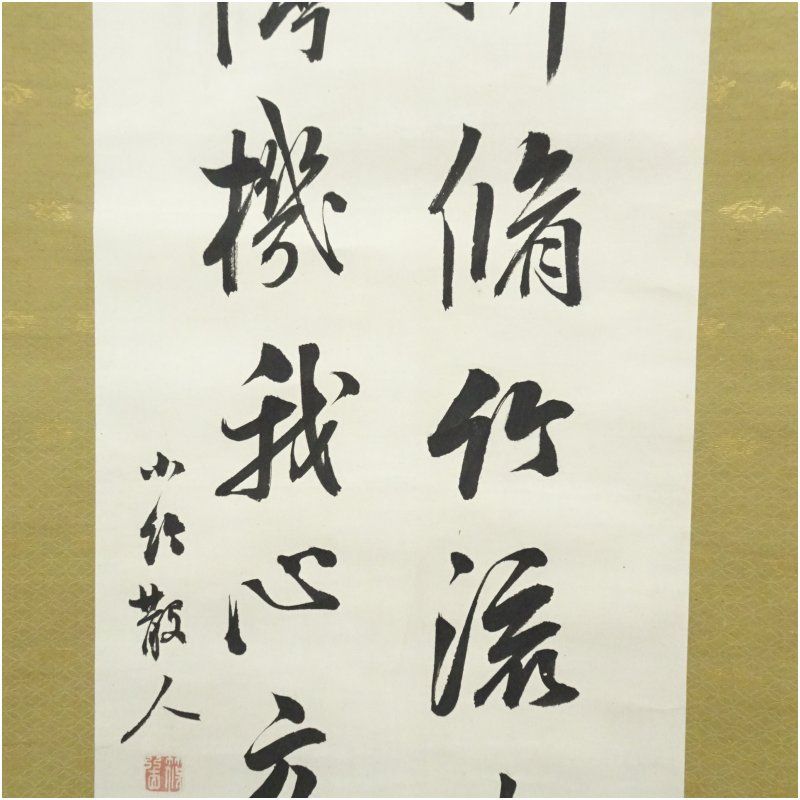 脩竹流
機我心
小竹散人